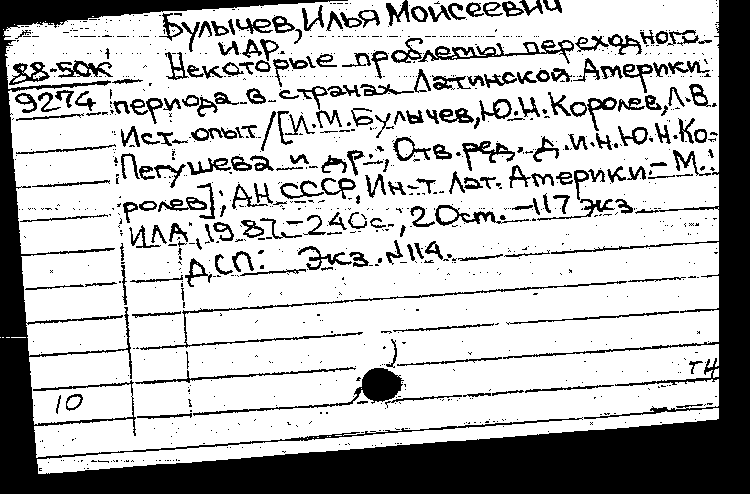 Булычев, Илья Моисеевич
и др.
88-50К Некоторые проблемы переходного
9274 периода в странах Латинской Америки:
Ист. опыт / [И.М. Булычев, Ю.Н. Королев, Л.В.
Пегушева и др.; Отв. ред. д.и.н. Ю.Н. Ко-
ролев]; АН СССР, Ин-т Лат. Америки. - М.:
ИЛА, 1987. - 240с.; 20см. - 117 экз.
ДСП: Экз. N114.
ТН
10